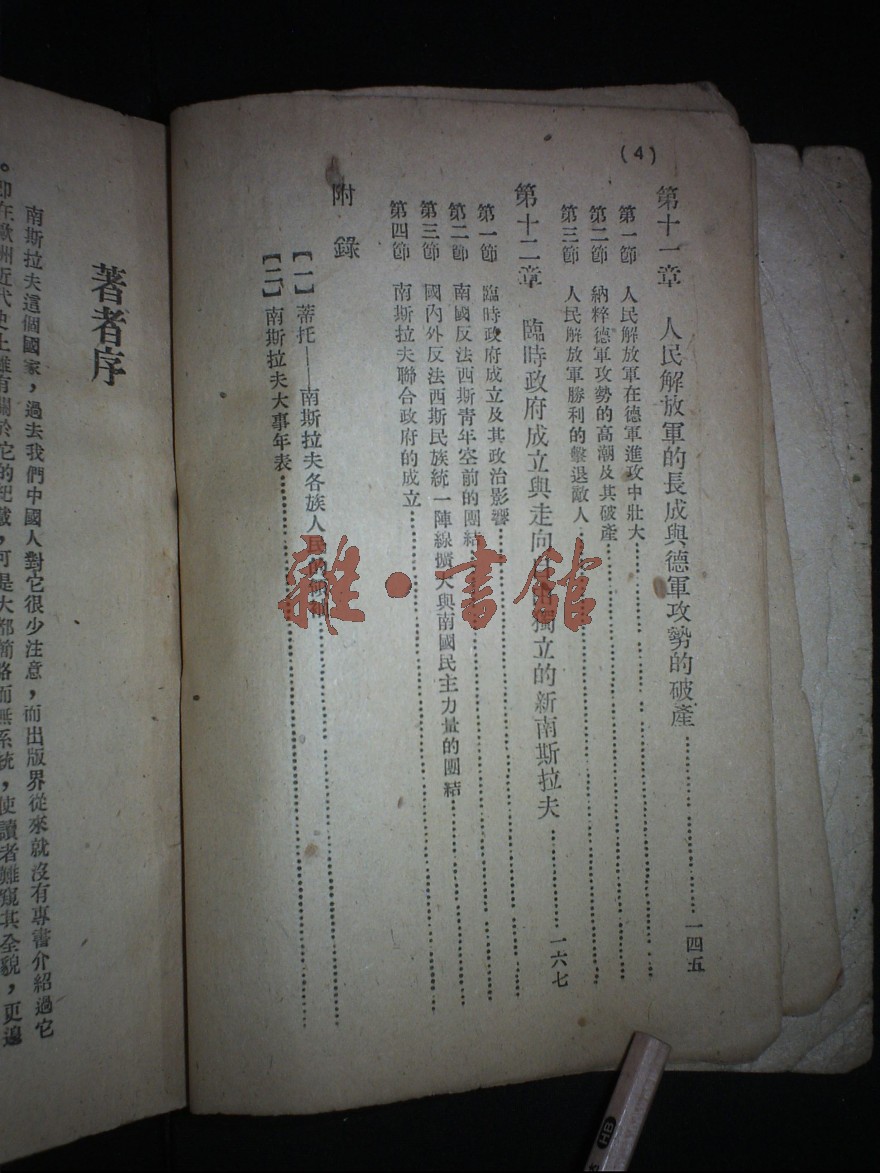 (4)
第十一章 人民解放軍的長成與德軍攻勢的破產…………一四五
第一節 人民解放軍在德軍進攻中壯大…………
第二節 納粹德軍攻勢的高潮及其破產…………
第三節 人民解放軍勝利的擊退敵人…………
第十二章 臨時政府成立與走向獨立的新南斯拉夫…………一六七
第一節 臨時政府成立及其政治影響…………
第二節 南國反法西斯青年空前的團結…………
第三節 國內外反法西斯民族統一陣線擴大與南國民主力量的團結…………
第四節 南斯拉夫聯合政府的成立…………
附錄
【一】蒂托——南斯拉夫各族人民的…………
【二】南斯拉夫大事年表…………
著者序
南斯拉夫這個國家，過去我們中國人對它很少注意，而出版界從來就沒有專書介紹過它
。即在歐洲近代史上雖有關於它的記載，可是大都簡略而無系統，使讀者難窺其全貌，更遑
雜·書館
HB